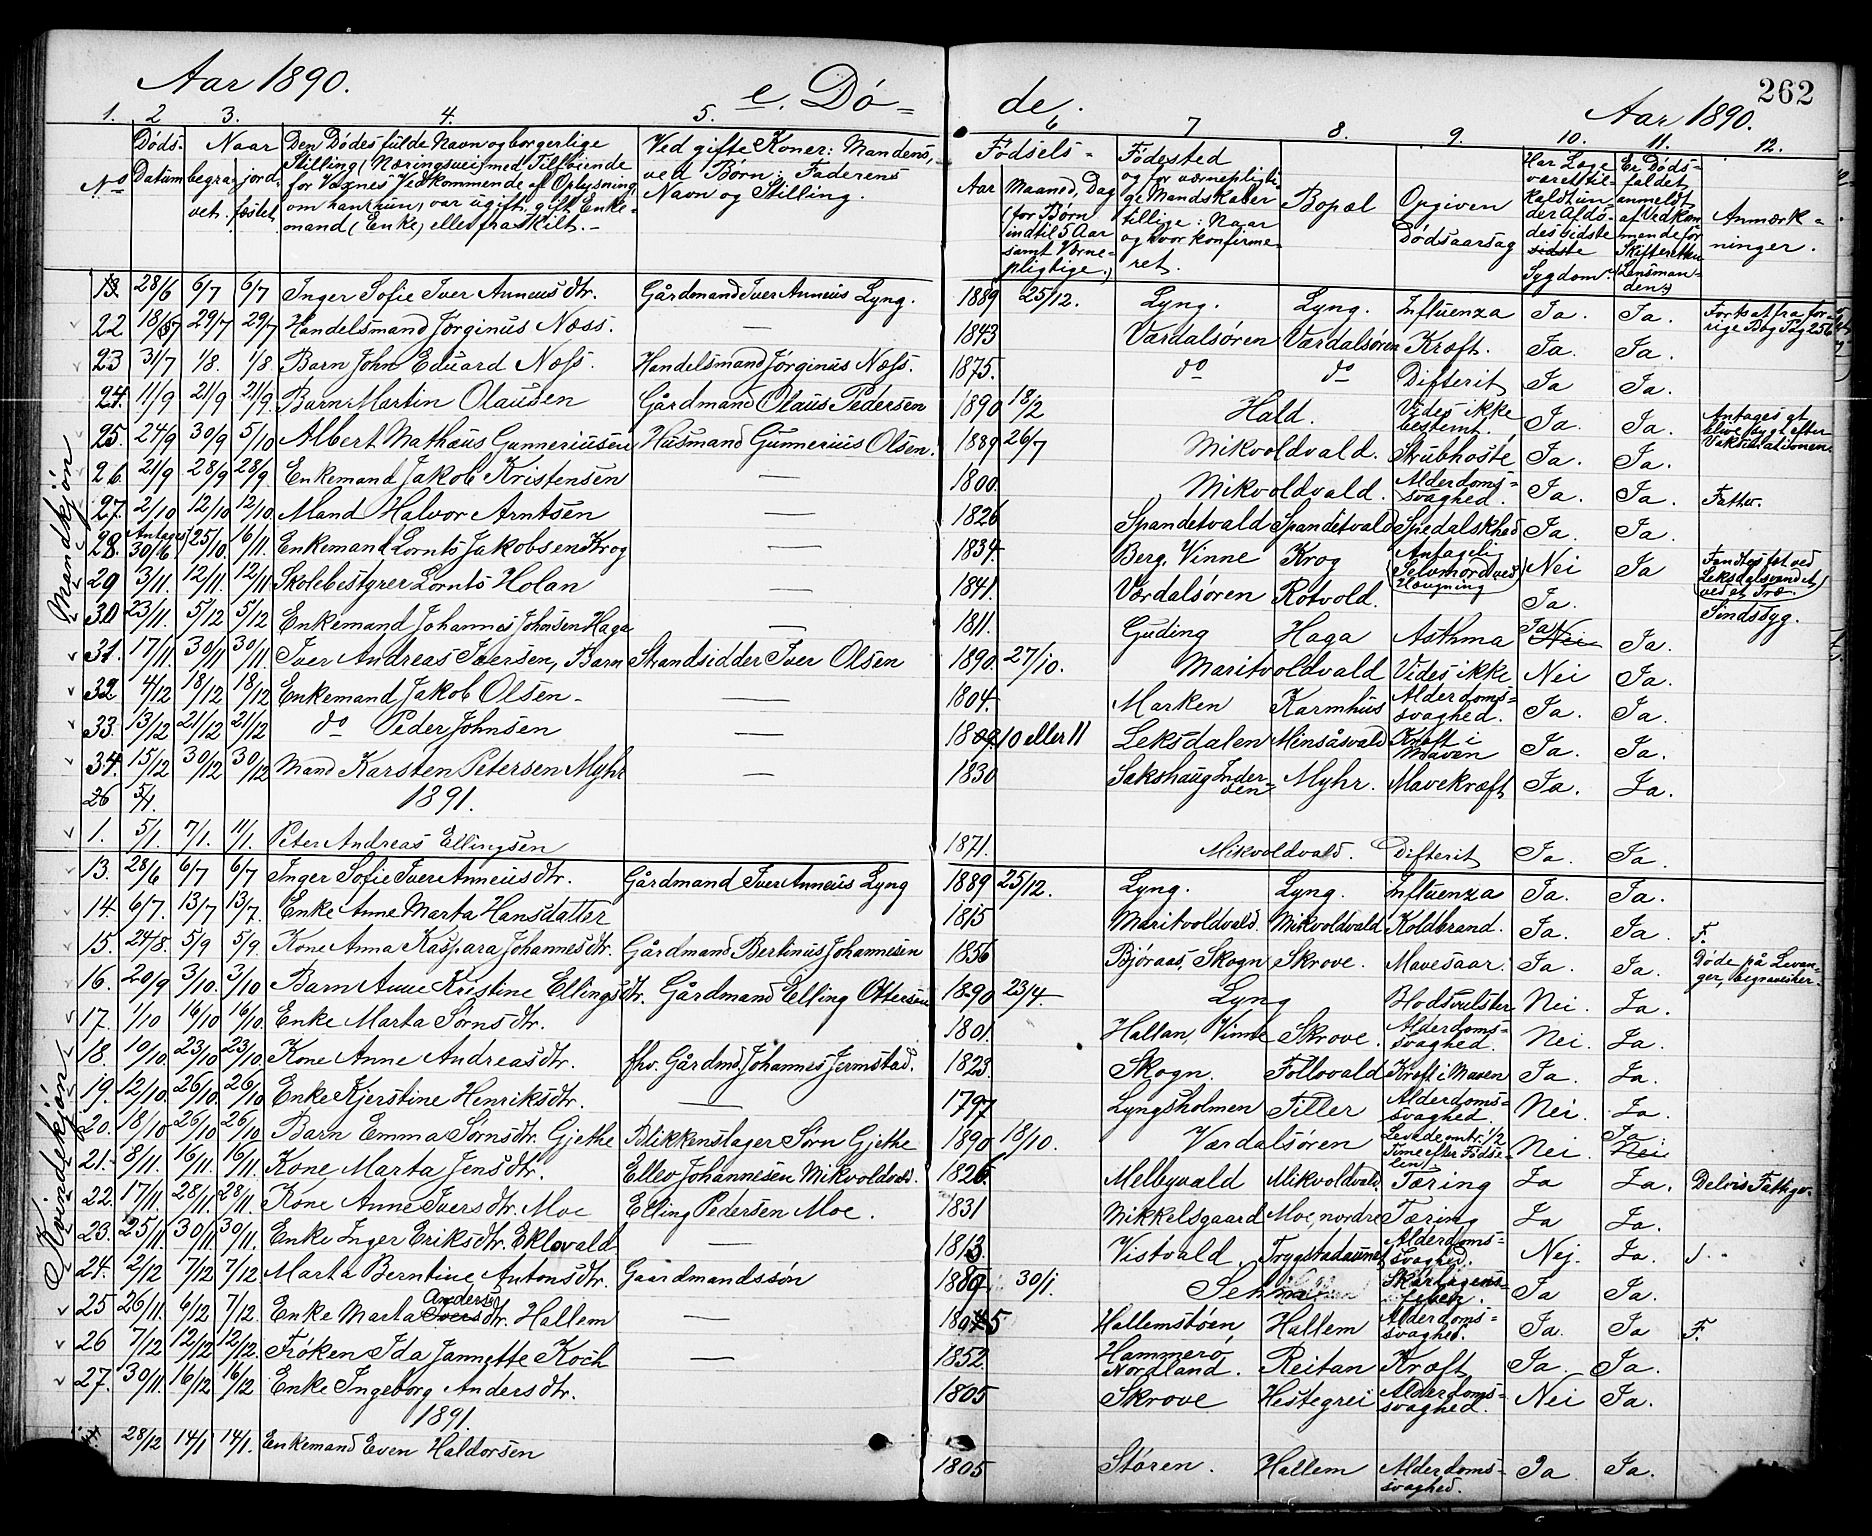 Aar 1890.
e. Dö-
de.
Aar 1890.
262
1. 2 3. 4. 5. 6 7 8. 9. 10. 11. 12.
No
Døds-Datum
Naar begravet. jordfæstet
Den Dødes fulde Navn og borgerlige
Stilling (Næringsvei) med Tilføiende
for Voxnes Vedkommende af Oplysning
om han (hun) var ugift, gift, Enke-
mand (Enke) eller fraskilt.-
Ved gifte Koner: Mandens,
ved Børn: Faderens
Navn og Stilling.
Fødsels-
Aar
Maaned, Dag
(for Børn
indtil 5 Aar
samt Værne-
pligtige.)
Fødested
og for værnepligti-
ge Mandskaber
tillige: Naar
og hvor konfirme-
ret.
Bopæl
Opgiven
Dødsaarsag
Har Læge
været til-
kaldt un-
der Afdø-
des sidste
Sygdom.
Er Døds-
faldet
anmeldt
af Vedkom-
mende for
Skifteretten
(Lensman-
den)
Anmærk-
ninger.
Mandkjøn
13 28/6 6/7 6/7 Inger Sofie Iver Anneusdtr. Gårdmand Iver Anneus Lyng. 1889 25/12. Lyng. Lyng. Influenza Ja. Ja. Fortsat fra for-
rige Bog Pag 256
22 18/7 29/7 29/7 Handelsmand Jørginus Næss. — 1843 Værdalsøren Værdalsøren Kræft. Ja. Ja.
23 31/7 1/8. 1/8 Barn John Eduard Næss. Handelsmand Jørginus Næss. 1875. do do Difterit Ja Ja.
24. 11/9 21/9 21/9. Barn Martin Olausen Gårdmand Olaus Pedersen 1890 18/2 Hald. Vides ikke
bestemt. Ja. Ja. Antages at
blive sygt efter
Vaksinationen.
25. 24/9 30/9 5/10 Albert Mathæus Gunneriussen Husmand Gunnerius Olsen. 1889 26/7 Mikvoldvald. Skrubhoste Ja. Ja.
26. 21/9 28/9 28/9. Enkemand Jakob Kristensen — 1800. Mikvoldvald. Alderdoms-
svaghed. Ja. Ja. Fatter.
27. 2/10 12/10 12/10 Mand Halvor Arntsen — 1826 Spandetvald Spandetvald Spedalskhed Ja. Ja.
28. Antages 30/6 25/10. 16/11. Enkemand Lornts Jakobsen Krog — 1834. Berg, Vinne Krog Antagelig
(Selvmord ved
Hængning) Nei Ja Fandtes fat ved
Leksdalsvandet
ved et Træ.
29 3/11 12/11. 12/11 Skolebestyrer Lornts Holan — 1841. Værdalsøren Rotvold. Ja. Sindssyg.
30 23/11. 5/12 5/12 Enkemand Johannes Johnsen Haga — 1811. Guding Haga Asthma Ja Nei Ja.
31. 17/11. 30/11 30/11. Iver Andreas Iversen, Barn Strandsidder Iver Olsen 1890. 27/10. Maritvoldvald Vides ikke Nei Ja.
32 4/12 18/12 18/12 Enkemand Jakob Olsen. — 1804. Marken Karmhus Alderdoms-
svaghed. Ja. Ja.
33. 13/12 21/12 21/12 do Peder Johnsen — 1809 10 eller 11 Leksdalen Minsåsvald Kræft i
Maven Ja. Ja.
34. 15/12 30/12 30/12 Mand Karsten Petersen Myhr — 1830 Sakshaug Inder-
øen Myhr. Mavekræft Ja. Ja.
26 5/1. 1891.
1. 5/1. 7/1. 11/1. Peter Andreas Ellingsen 1871. Mikvoldvald. Difterit Ja. Ja.
Kvindekjøn
13. 28/6 6/7 6/7 Inger Sofie Iver Anneusdtr. Gårdmand Iver Anneus Lyng 1889 25/12. Lyng. Lyng. Influenza Ja. Ja.
14. 6/7. 13/7 13/7. Enke Anne Marta Hansdatter 1815 Maritvoldvald. Mikvoldvald Koldbrand. Ja. Ja. F.
15. 24/8. 5/9 5/9. Kone Anna Kaspara Johannesdtr. Gårdmand Bertinus Johannesen 1856 Bjøraas, Skogn Skrove. Mavesaar. Ja. Ja. Døde på Levan-
ger, begraves her.
16. 20/9 3/10. 3/10 Barn Anne Kristine Ellingsdtr. Gårdmand Elling Ottersen 1890 23/4. Lyng Blodsvulster Nei. Ja.
17. 1/10 16/10 16/10. Enke Marta Sørnsdtr. 1801. Hallan, Vinne Skrove. Alderdoms-
svaghed. Nei. Ja.
18. 19/10. 23/10 23/10. Kone Anne Andreasdtr. fhv. Gårdmd. Johannes Jermstad. 1823. Skogn. Follovald Kræft i Maven Ja. Ja.
19. 12/10. 26/10 26/10 Enke Kjerstine Henriksdtr. — 1797 Lyngsholmen Tiller Alderdoms-
svaghed Nei. Ja.
20. 18/10 26/10 26/10 Barn Emma Sørnsdtr. Gjethe Blikkenslager Sørn Gjethe 1890 18/10. Værdalsøren Levede omtr. 1/2
Time efter Fødse-
len) Nei. Ja. Nei
21. 8/11. 16/11. 16/11. Kone Marta Jensdtr. Ellev Johannesen Mikvoldvald. 1826. Melbyvald Mikvoldvald. Tæring Ja Ja. Delvis Fattigv.
22. 17/11. 28/11 28/11. Kone Anne Iversdtr. Moe Elling Pedersen Moe. 1831 Mikkelsgaard Moe, nordre Tæring Ja Ja.
23. 25/11. 30/11 30/11. Enke Inger Eriksdtr. Eklovald — 1813. Vistvald. Trygstadaunet Alderdoms-
svaghed. Nej. Ja.
24. 2/12 7/12 7/12 Marta Berntine Antonsdtr. Gaardmandssøn 1889 30/1. Skarlagens-
feber. Ja Ja.
25 26/11. 6/12 7/12. Enke Marta Andersdtr. Hallem — 1805 Hallemstøen Hallem Alderdoms-
svaghed. Ja. Ja F.
26 7/12 12/12 12/12. Frøken Ida Jannette Koch — 1852. Hammerø,
Nordland. Reitan Kræft Ja. Ja.
27. 30/11. 16/12 16/12 Enke Ingeborg Andersdtr. 1805 Skrove Hestegrei Alderdoms-
svaghed. Nei Ja.
1891.
28/12 14/1 14/1. Enkemand Even Haldorsen 1805 Støren. Hallem Alderdoms-
svaghed. Ja Ja.